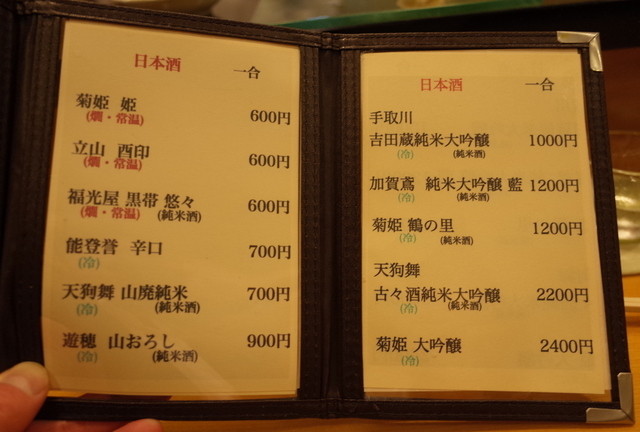 日本酒 一合
菊姫 姫 600円
(燗・常温)
立山 酉印 600円
(燗・常温)
福光屋 黒帯 悠々 600円
(燗・常温) (純米酒)
能登誉 辛口 700円
(冷)
天狗舞 山廃純米 700円
(冷) (純米酒)
遊穂 山おろし 900円
(冷) (純米酒)
日本酒 一合
手取川
吉田蔵純米大吟醸 1000円
(冷) (純米酒)
加賀鳶 純米大吟醸 藍 1200円
(冷) (純米酒)
菊姫 鶴の里 1200円
(冷) (純米酒)
天狗舞
古々酒純米大吟醸 2200円
(冷) (純米酒)
菊姫 大吟醸 2400円
(冷)